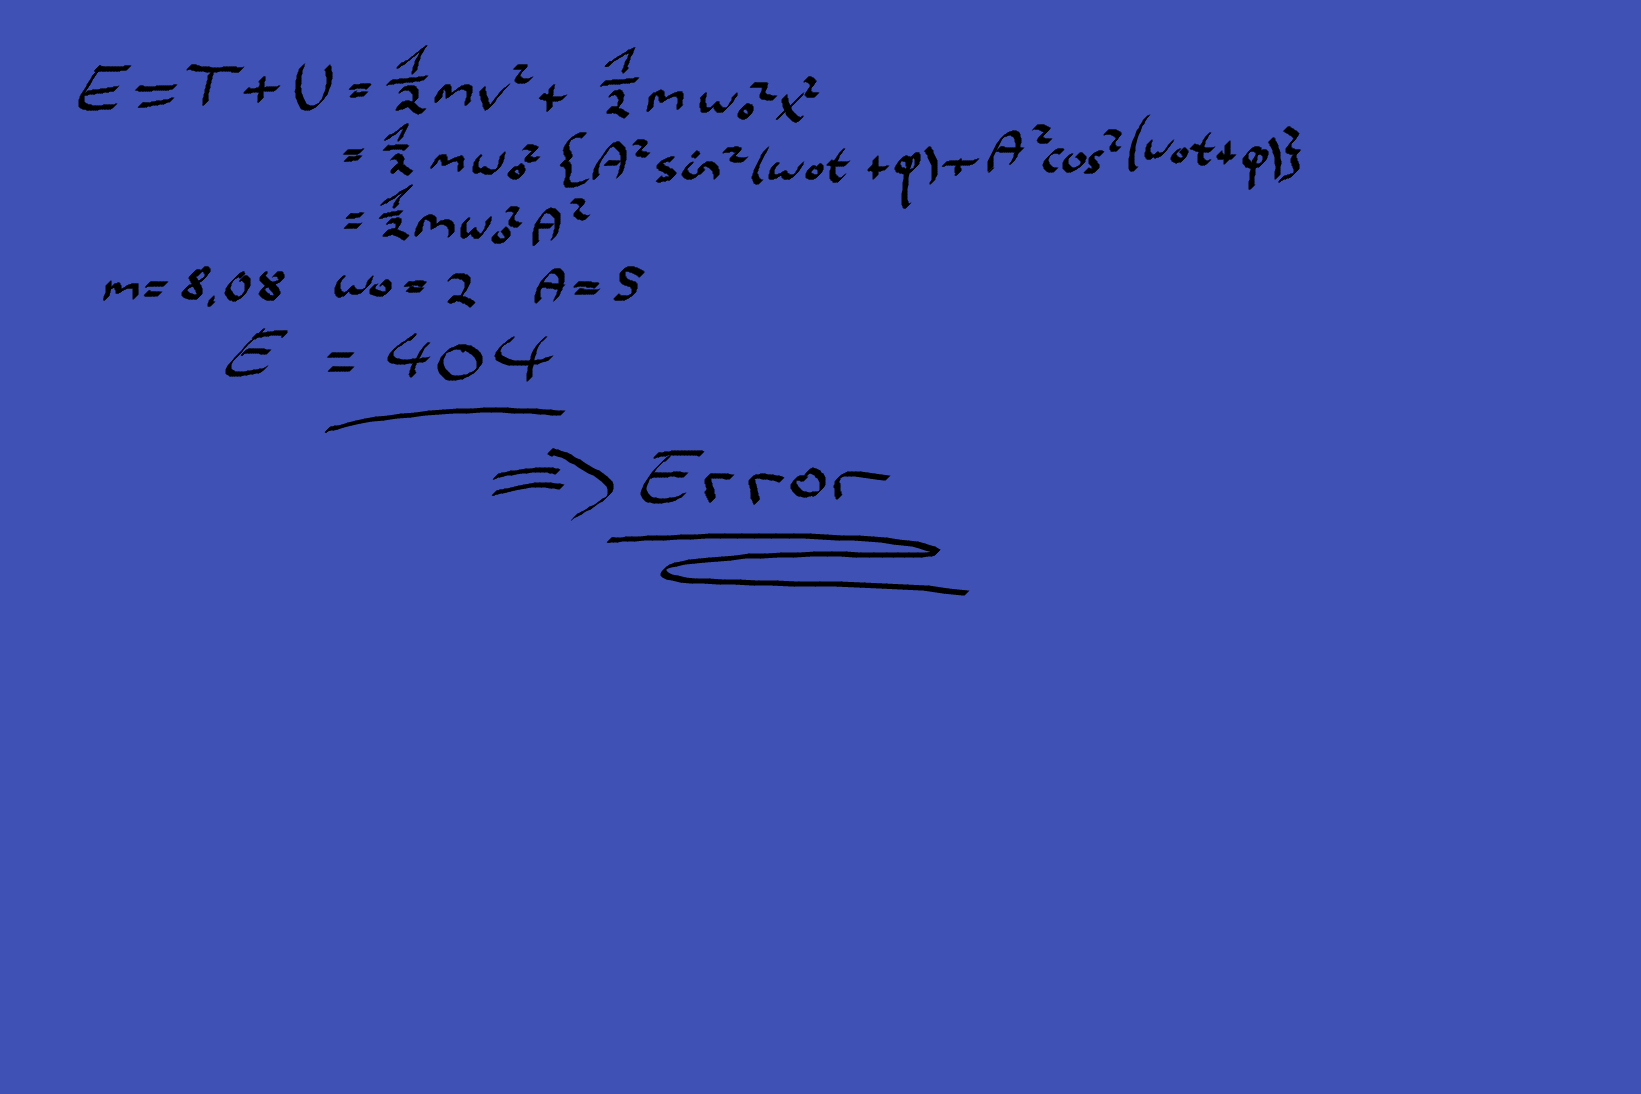 E = T + U = 1/2 mv² + 1/2 m w₀² x²
= 1/2 m w₀² {A² sin² (w₀t + φ) + A² cos² (w₀t + φ)}
= 1/2 m w₀² A²
m = 8,08 w₀ = 2 A = 5
E = 404
⇒ Error